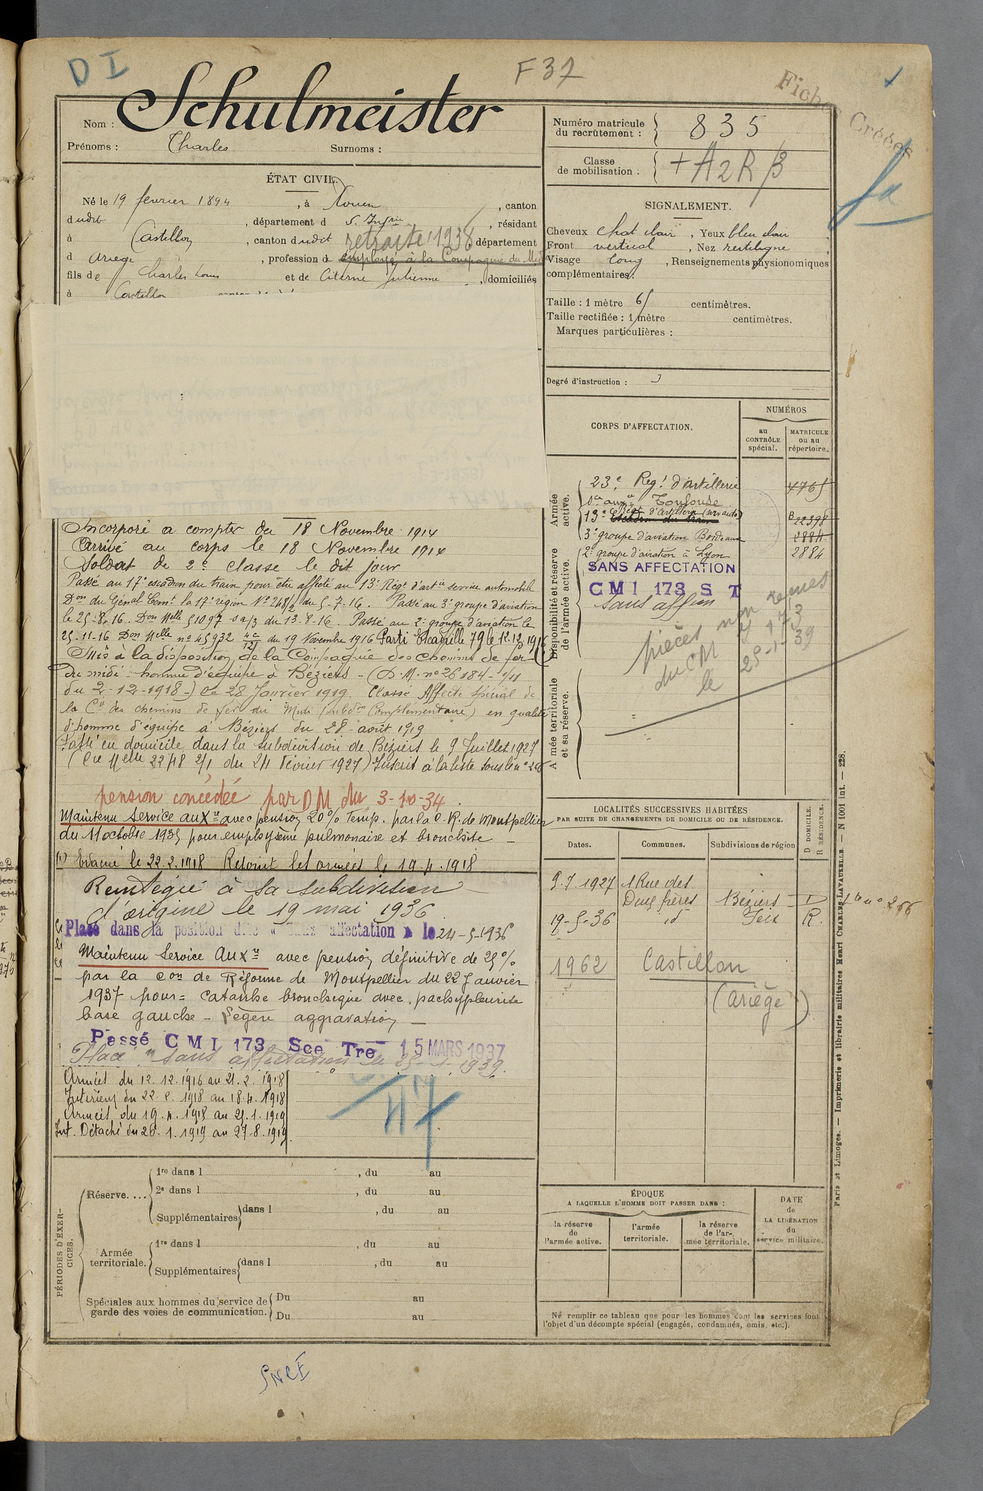 D I
F 37
Fiches Créées
Nom : Schulmeister
Prénoms : Charles Surnoms :
ÉTAT CIVIL.
Né le 19 février 1894, à Rouen, canton
dudit, département d S. Infre, résidant
à Castillon, canton dudit retraité 1938 département
d Ariège, profession d employé à la Compagnie du Midi
fils de Charles Louis et de Citerne Julienne, domiciliés
à Castillon
Incorporé à compter du 18 Novembre 1914
Arrivé au corps le 18 Novembre 1914
Soldat de 2e classe le dit jour
Passé au 17e escadron du train pour être affecté au 13e Régt d'artie service automobile
Don du Génal Comt la 17e région No du 5-7-16. Passé au 3e groupe d'aviation
le 25.8.16. Don Melle 51097 du 13.8.16. Passé au 2e groupe d'aviation le
25-11-16 Don Melle no 45932 du 19 Novembre 1916 Parti Escadrille 79 le 12.12.1916
Mis à la disposition de la Compagnie des Chemins de fer
du midi homme d'équipe à Béziers - (D.M. no 26184-
du 2-12-1918-) du 28 Janvier 1919. Classé Affecté Spécial de
la Cie des chemins de fer du Midi (subdon Complémentaire) en qualité
d'homme d'équipe à Béziers du 28 août 1919
Passé en domicile dans la subdivision de Béziers le 9 Juillet 1927
(Cre Melle 2248 2/1 du 24 février 1927) Inscrit à la liste sous le no 266
pension concédée par DM du 3-10-34
Maintenu Service auxre avec pension 20% Temp. par la C.R. de Montpellier
du 11 octobre 1935 pour emphysème pulmonaire et bronchite
(1) Evacué le 22.2.1918 Rejoint les armées le 19.4.1918
Réintégré à sa subdivision
d'origine le 19 mai 1936
Placé dans la position dite sans affectation le 24-5-1936
Maintenu Service Auxre avec pension définitive de 25%
par la Con de Réforme de Montpellier du 22 Janvier
1937 pour = Catarrhe bronchique avec pachypleurite
base gauche - légère aggravation
Passé CMI 173 Sce Tre 15 MARS 1937
Placé "sans affectation" le 25-1-1939.
Armées du 12.12.1916 au 21.2.1918
Intérieur du 22.2.1918 au 18.4.1918
Armées du 19.4.1918 au 27.1.1919
Int. Détaché du 28.1.1919 au 27.8.1919
PÉRIODES D'EXERCICES.
Réserve....
1re dans l , du au
2e dans l , du au
Supplémentaires dans l , du au
Armée territoriale.
1re dans l , du au
Supplémentaires dans l , du au
Spéciales aux hommes du service de garde des voies de communication.
Du au
Du au
SNCF
Numéro matricule du recrutement : 835
Classe de mobilisation : + A2R/3
SIGNALEMENT.
Cheveux chat clair, Yeux bleu clair
Front vertical, Nez rectiligne
Visage long, Renseignements physionomiques
complémentaires:
Taille : 1 mètre 65 centimètres.
Taille rectifiée : 1 mètre centimètres.
Marques particulières :
Degré d'instruction : 3
CORPS D'AFFECTATION.
NUMÉROS
au CONTRÔLE spécial.
MATRICULE ou au répertoire.
Armée active.
23e Regt d'artillerie 4765
Toulouse
13e Régt d'artillerie (serv auto) 22398
3e groupe d'aviation Bordeaux 2884
2e groupe d'aviation à Lyon 2884
Disponibilité et réserve de l'armée active.
SANS AFFECTATION
CMI 173 S T
Sans affon
pièces non reçues
du CM I 173
le 25-1-39
Armée territoriale et sa réserve.
LOCALITÉS SUCCESSIVES HABITÉES
PAR SUITE DE CHANGEMENTS DE DOMICILE OU DE RÉSIDENCE.
Dates. Communes. Subdivisions de région
D. DOMICILE. R. RÉSIDENCE.
9-7 1927 1 Rue des
Deux frères Béziers D no 266
19-5-36 id R.
1962 Castillon
(Ariège)
ÉPOQUE
A LAQUELLE L'HOMME DOIT PASSER DANS :
la réserve de l'armée active.
l'armée territoriale.
la réserve de l'armée territoriale.
DATE de LA LIBÉRATION du service militaire.
Ne remplir ce tableau que pour les hommes dont les services font l'objet d'un décompte spécial (engagés, condamnés, omis, etc.).
Paris et Limoges. — Imprimerie et librairie militaires Henri CHARLES-LAVAUZELLE. — N 1001 int. — 228.